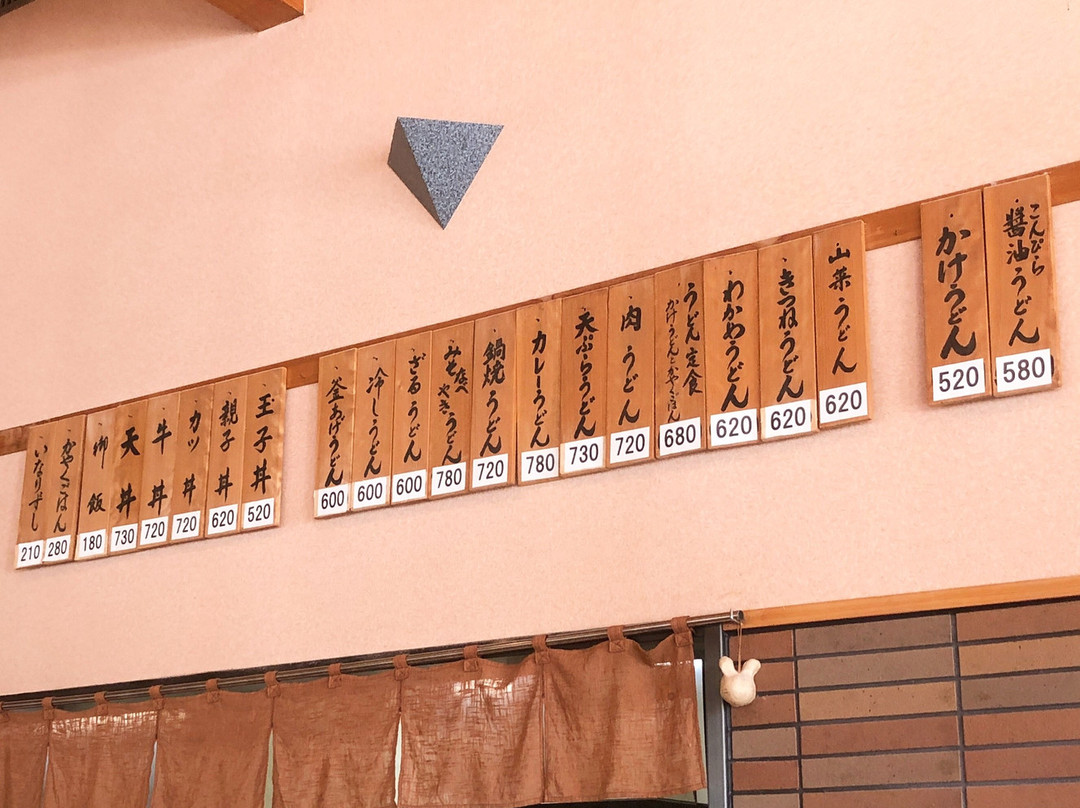 こんぴら
醤油うどん
580
かけうどん
520
山菜うどん
620
きつねうどん
620
わかめうどん
620
うどん定食
かけうどんとかやくごはん
680
肉うどん
720
天ぷらうどん
730
カレーうどん
780
鍋焼うどん
720
みそなべやきうどん
780
ざるうどん
600
冷しうどん
600
釜あげうどん
600
玉子丼
520
親子丼
620
カツ丼
720
牛丼
720
天丼
730
御飯
180
かやくごはん
280
いなりずし
210